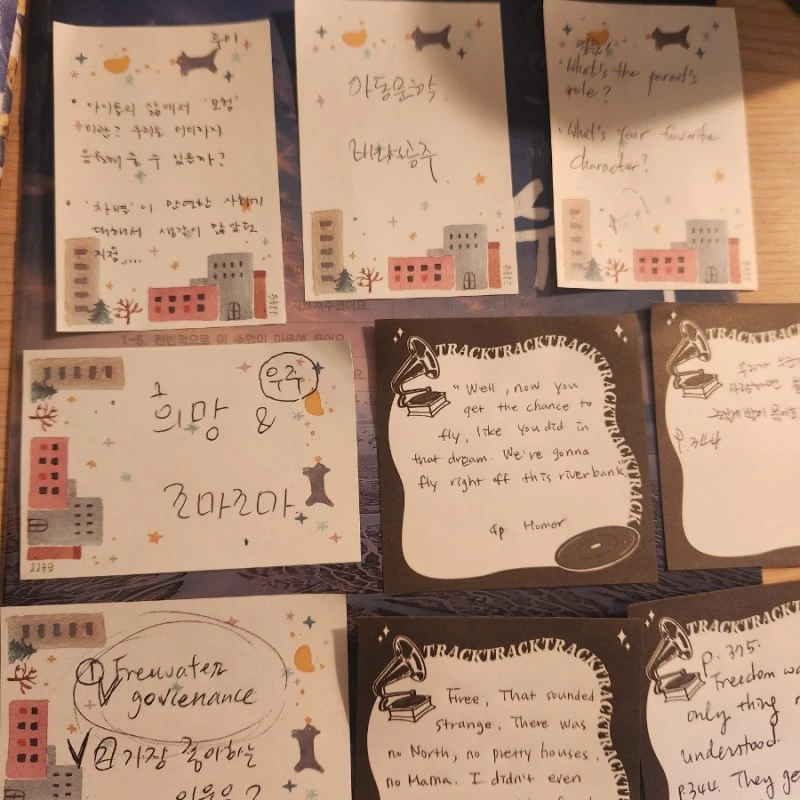 루이
• 아이들의 삶에서 '모험'
이란? 우리는 어디까지
응원해 줄 수 있을까?
• '차별'이 만연한 사회에
대해서 생각이 많았던
지점....
아동문학
질문!
• What's the parent's
role?
• What's your favorite
character?
1-6. 전반적으로 이 수업이 마음에 들어요
우주
희망 &
조마조마
TRACKTRACKTRACKTRACKTRACKTRACK
"Well, now you
get the chance to
fly, like you did in
that dream. We're gonna
fly right off this riverbank"
4p Homer
TRACKTRACK
우리가
P.344
① Freewater
governance
② 가장 좋아하는
TRACKTRACKTRACKTRACKTRACK
Free, That sounded
strange, There was
no North, no pretty houses,
no Mama. I didn't even
TRACKTRACKTRACK
P. 375.
Freedom wa
only thing
understood.
P.344. They ge